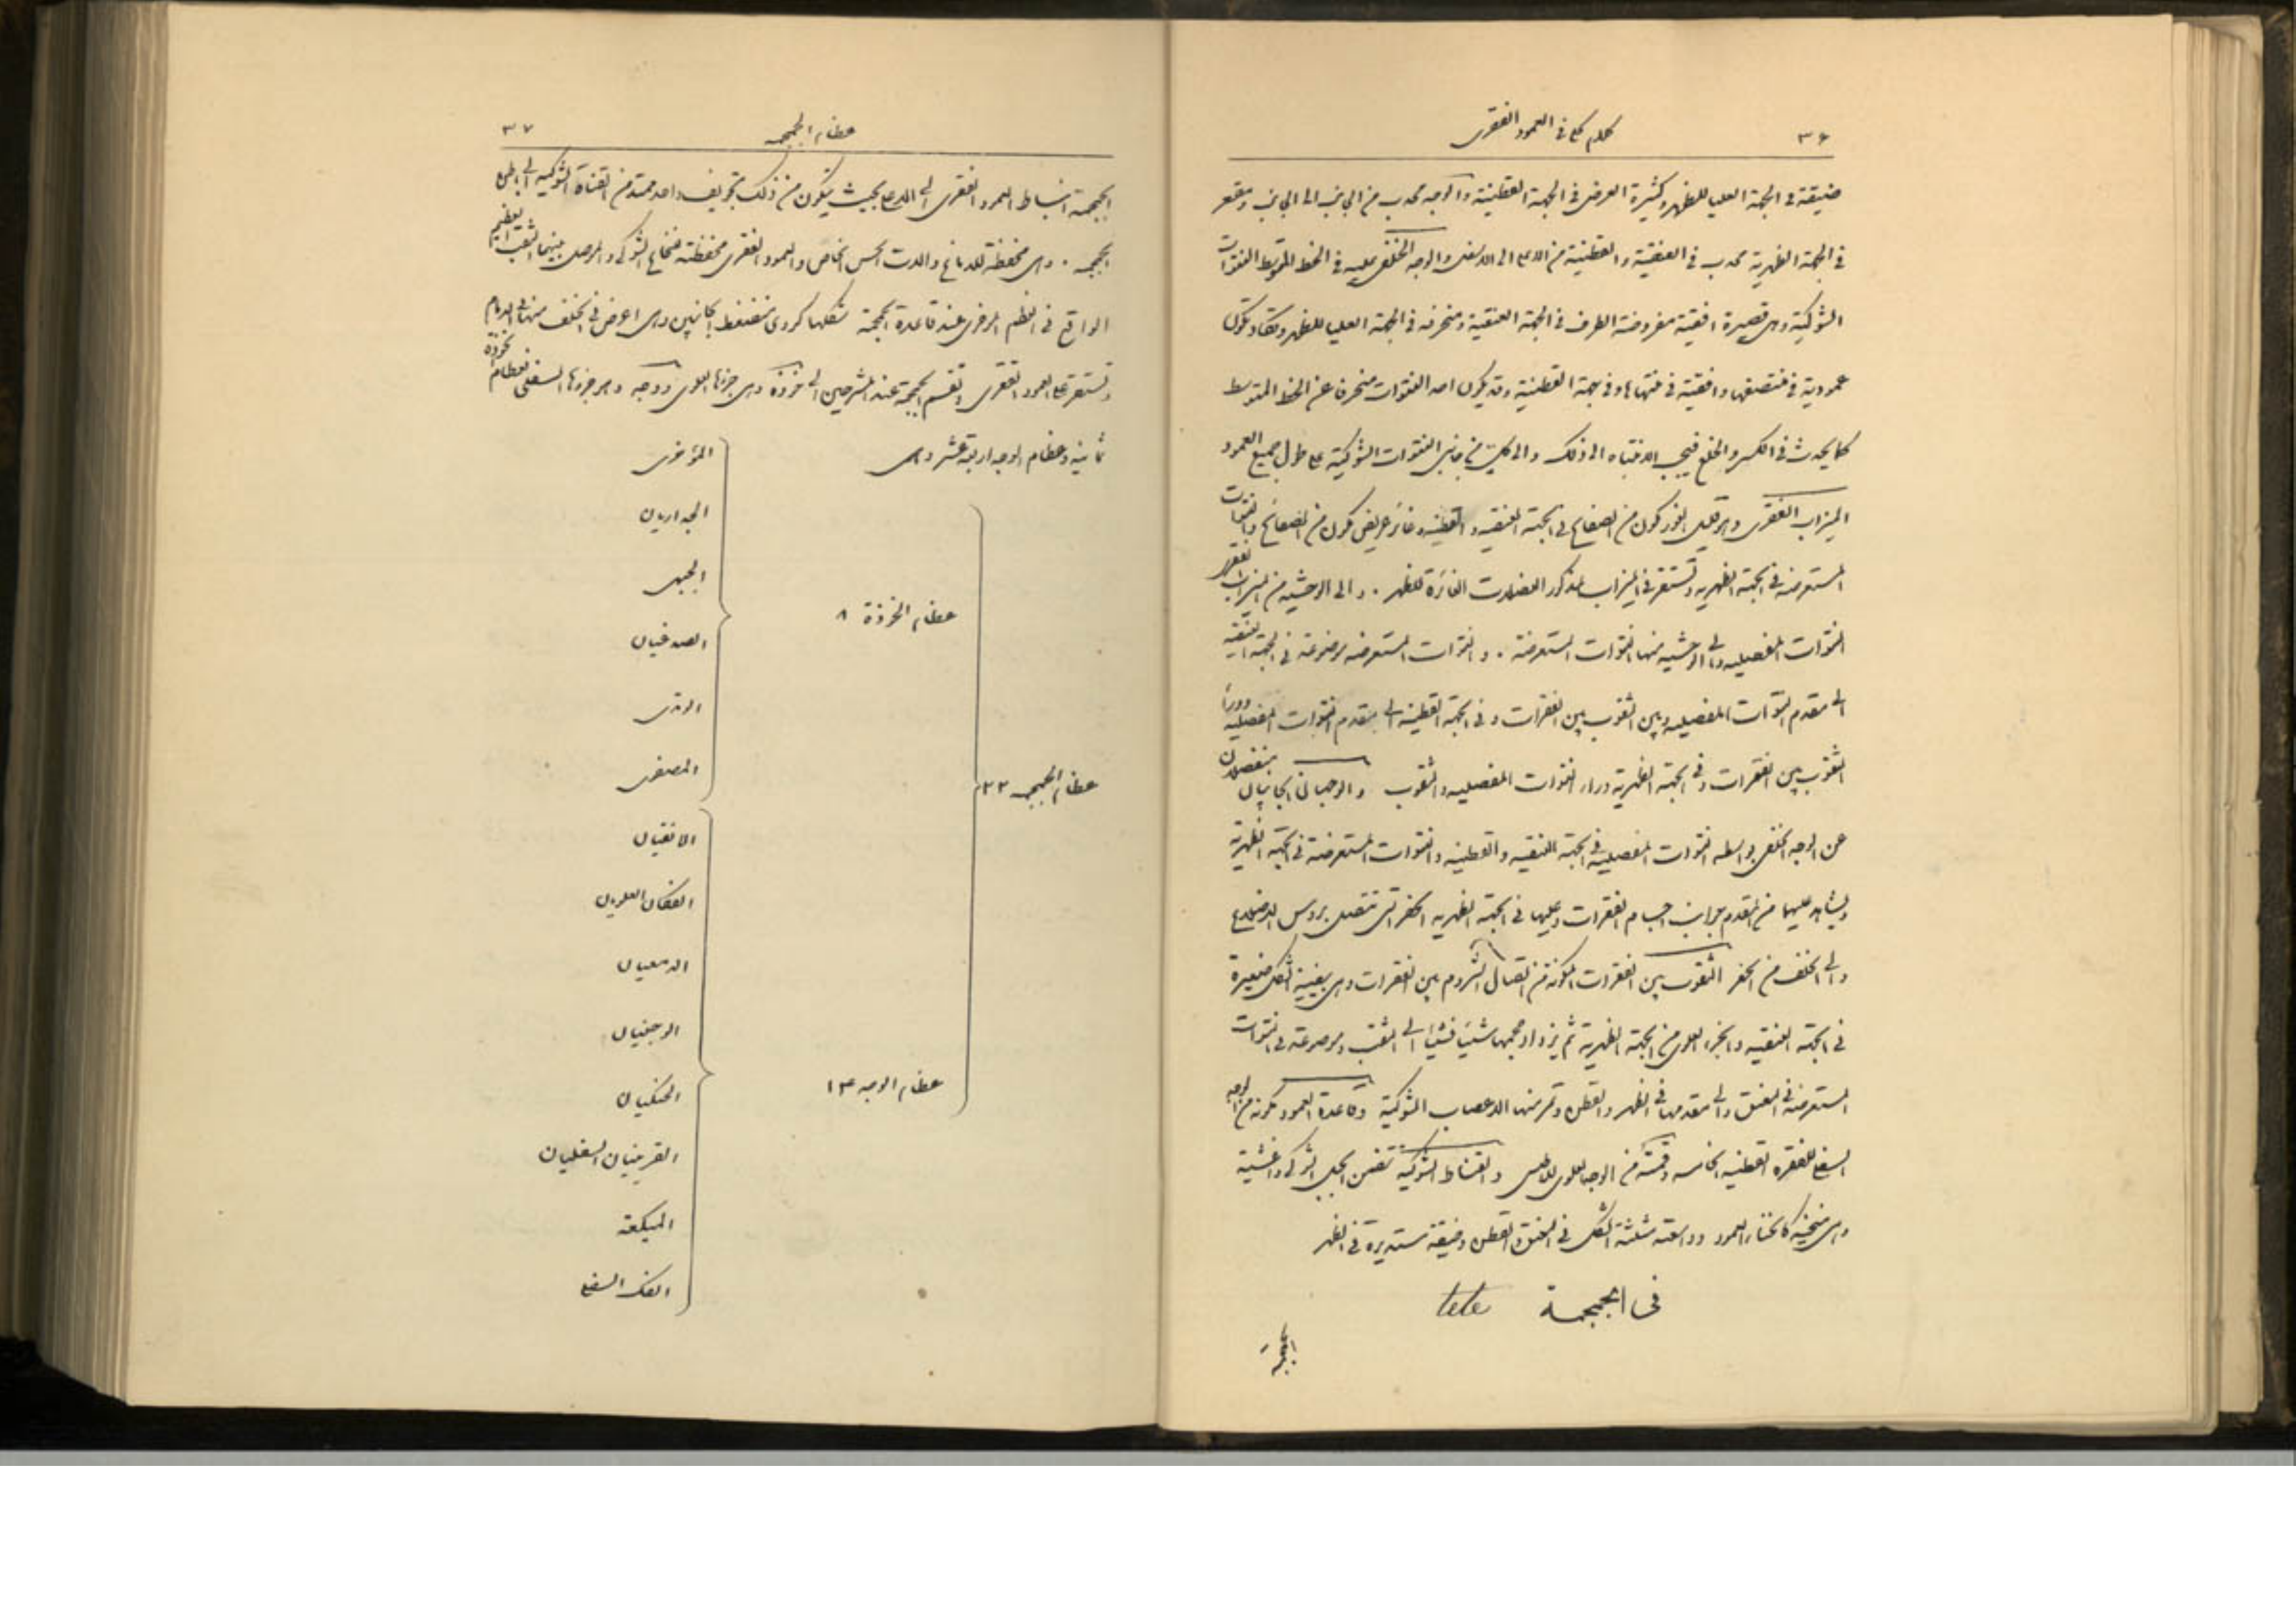 ٣٦ كلام كلى فى العمود الفقرى
ضيقة فى الجهة العليا للظهر وكثيرة العرض فى الجهة القطنية والوجه محدب من الجانب الى الجانب ومقعر
فى الجهة الظهرية محدب فى العنقية والقطنية من الاعلى الى الاسفل والوجه الخلفى عليه فى الخط المتوسط النتوات
الشوكية وهى قصيرة افقية مفروضة الطرف فى الجهة العنقية ومنحرفة فى الجهة العليا للظهر وتكاد تكون
عمودية فى منتصفها وافقية فى منتهاها وفى جهة القطنية وقد يكون احد النتوات منحرفا عن الخط المتوسط
كما يحدث فى الكسر والخلع فيجب الانتباه الى ذلك والى كل من جانبى النتوات الشوكية على طول جميع العمود
الميزاب الفقرى وهو قليل الغور مكون من الصفائح فى الجهة العنقيه والقطنيه وغائر عريض مكون من الصفائح والنتوات
المستعرضه فى الجهة الظهريه وتستقر فى الميزاب المذكور العضلات الغائرة للظهر . والى الوحشيه من الميزاب الفقرى
النتوات المفصليه والى الوحشيه منها النتوات المستعرضة . والنتوات المستعرضه موضوعة فى الجهة العنقيه
الى مقدم النتوات المفصليه وبين الثقوب بين الفقرات وفى الجهة القطنيه الى مقدم النتوات المفصليه ووراء
الثقوب بين الفقرات وفى الجهة الظهرية وراء النتوات المفصليه والثقوب والوجهان الجانبيان منفصلان
عن الوجه الخلفى بواسطه النتوات المفصليه فى الجهة العنقيه والقطنيه والنتوات المستعرضة فى الجهة الظهرية
ويشاهد عليهما من المقدم جوانب اجسام الفقرات وعليها فى الجهة الظهريه الحفر التى تتصل بروس الاضلاع
والى الخلف من الحفر الثقوب بين الفقرات المكونة من اتصال الشروم بين الفقرات وهى بيضية الشكل صغيرة
فى الجهة العنقيه والجزء العلوى من الجهة الظهرية ثم يزداد حجمها شيئا فشيئا الى الثقب وموضوعة فى النتوات
المستعرضه فى العنق والى مقدمها فى الظهر والقطن وتمر منها الاعصاب الشوكية وقاعدة العمود مكونة من الوجه
السفلى للفقره القطنيه الخامسه وقمته من الوجه العلوى للاطلس والقناة الشوكية تتضمن الحبل الشوكى واغشيته
وهى منحنيه كانحناء العمود وواسعة مثلثة الشكل فى العنق والقطن وضيقة مستديرة فى الظهر
فى الجمجمة tete
الجمجمة
عظام الجمجمه ٣٧
الجمجمة انبساط العمود الفقرى الى الاعلى بحيث يتكون من ذلك تجويف واحد ممتد من القناة الشوكيه الى باطن
الجمجمه . وهى محفظة للدماغ والات الحس الخاص والعمود الفقرى محفظة للنخاع الشوكى والموصل بينهما الثقب العظيم
الواقع فى العظم المؤخرى عند قاعدة الجمجمة شكلها كروى منضغط الجانبين وهى اعرض فى الخلف منها فى الامام
وتستقر على العمود الفقرى وتقسم الجمجمة عند المشرحين الى خوذة وهى جزؤها العلوى ووجه وهو جزؤها السفلى فعظام الخوذة
ثمانية وعظام الوجه اربعة عشر وهى
عظام الجمجمه ٢٢
عظام الخوذة ٨
المؤخرى
الجداريان
الجبهى
الصدغيان
الوتدى
المصفوى
عظام الوجه ١٤
الانفيان
الفكان العلويان
الدمعيان
الوجنيان
الحنكيان
القرينيان السفليان
الميكعة
الفك السفلى